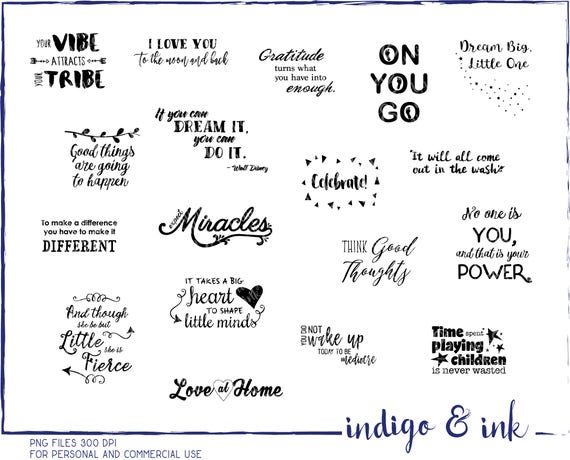 YOUR VIBE
ATTRACTS
YOUR TRIBE
I LOVE YOU
to the moon and back
Gratitude
turns what
you have into
enough.
ON
YOU
GO
Dream Big,
Little One
Good things
are going
to happen
If you can
DREAM IT,
you can
DO IT.
- Walt Disney
Celebrate!
"It will all come
out in the wash."
To make a difference
you have to make it
DIFFERENT
expect
Miracles
THINK Good
Thoughts
No one is
YOU,
and that is your
POWER.
And though
she be but
Little she is
Fierce
IT TAKES A BIG
heart
TO SHAPE
little minds
YOU DID NOT
wake up
TODAY TO BE
mediocre
Time spent
playing
children
is never wasted
Love at Home
indigo & ink
PNG FILES 300 DPI
FOR PERSONAL AND COMMERCIAL USE